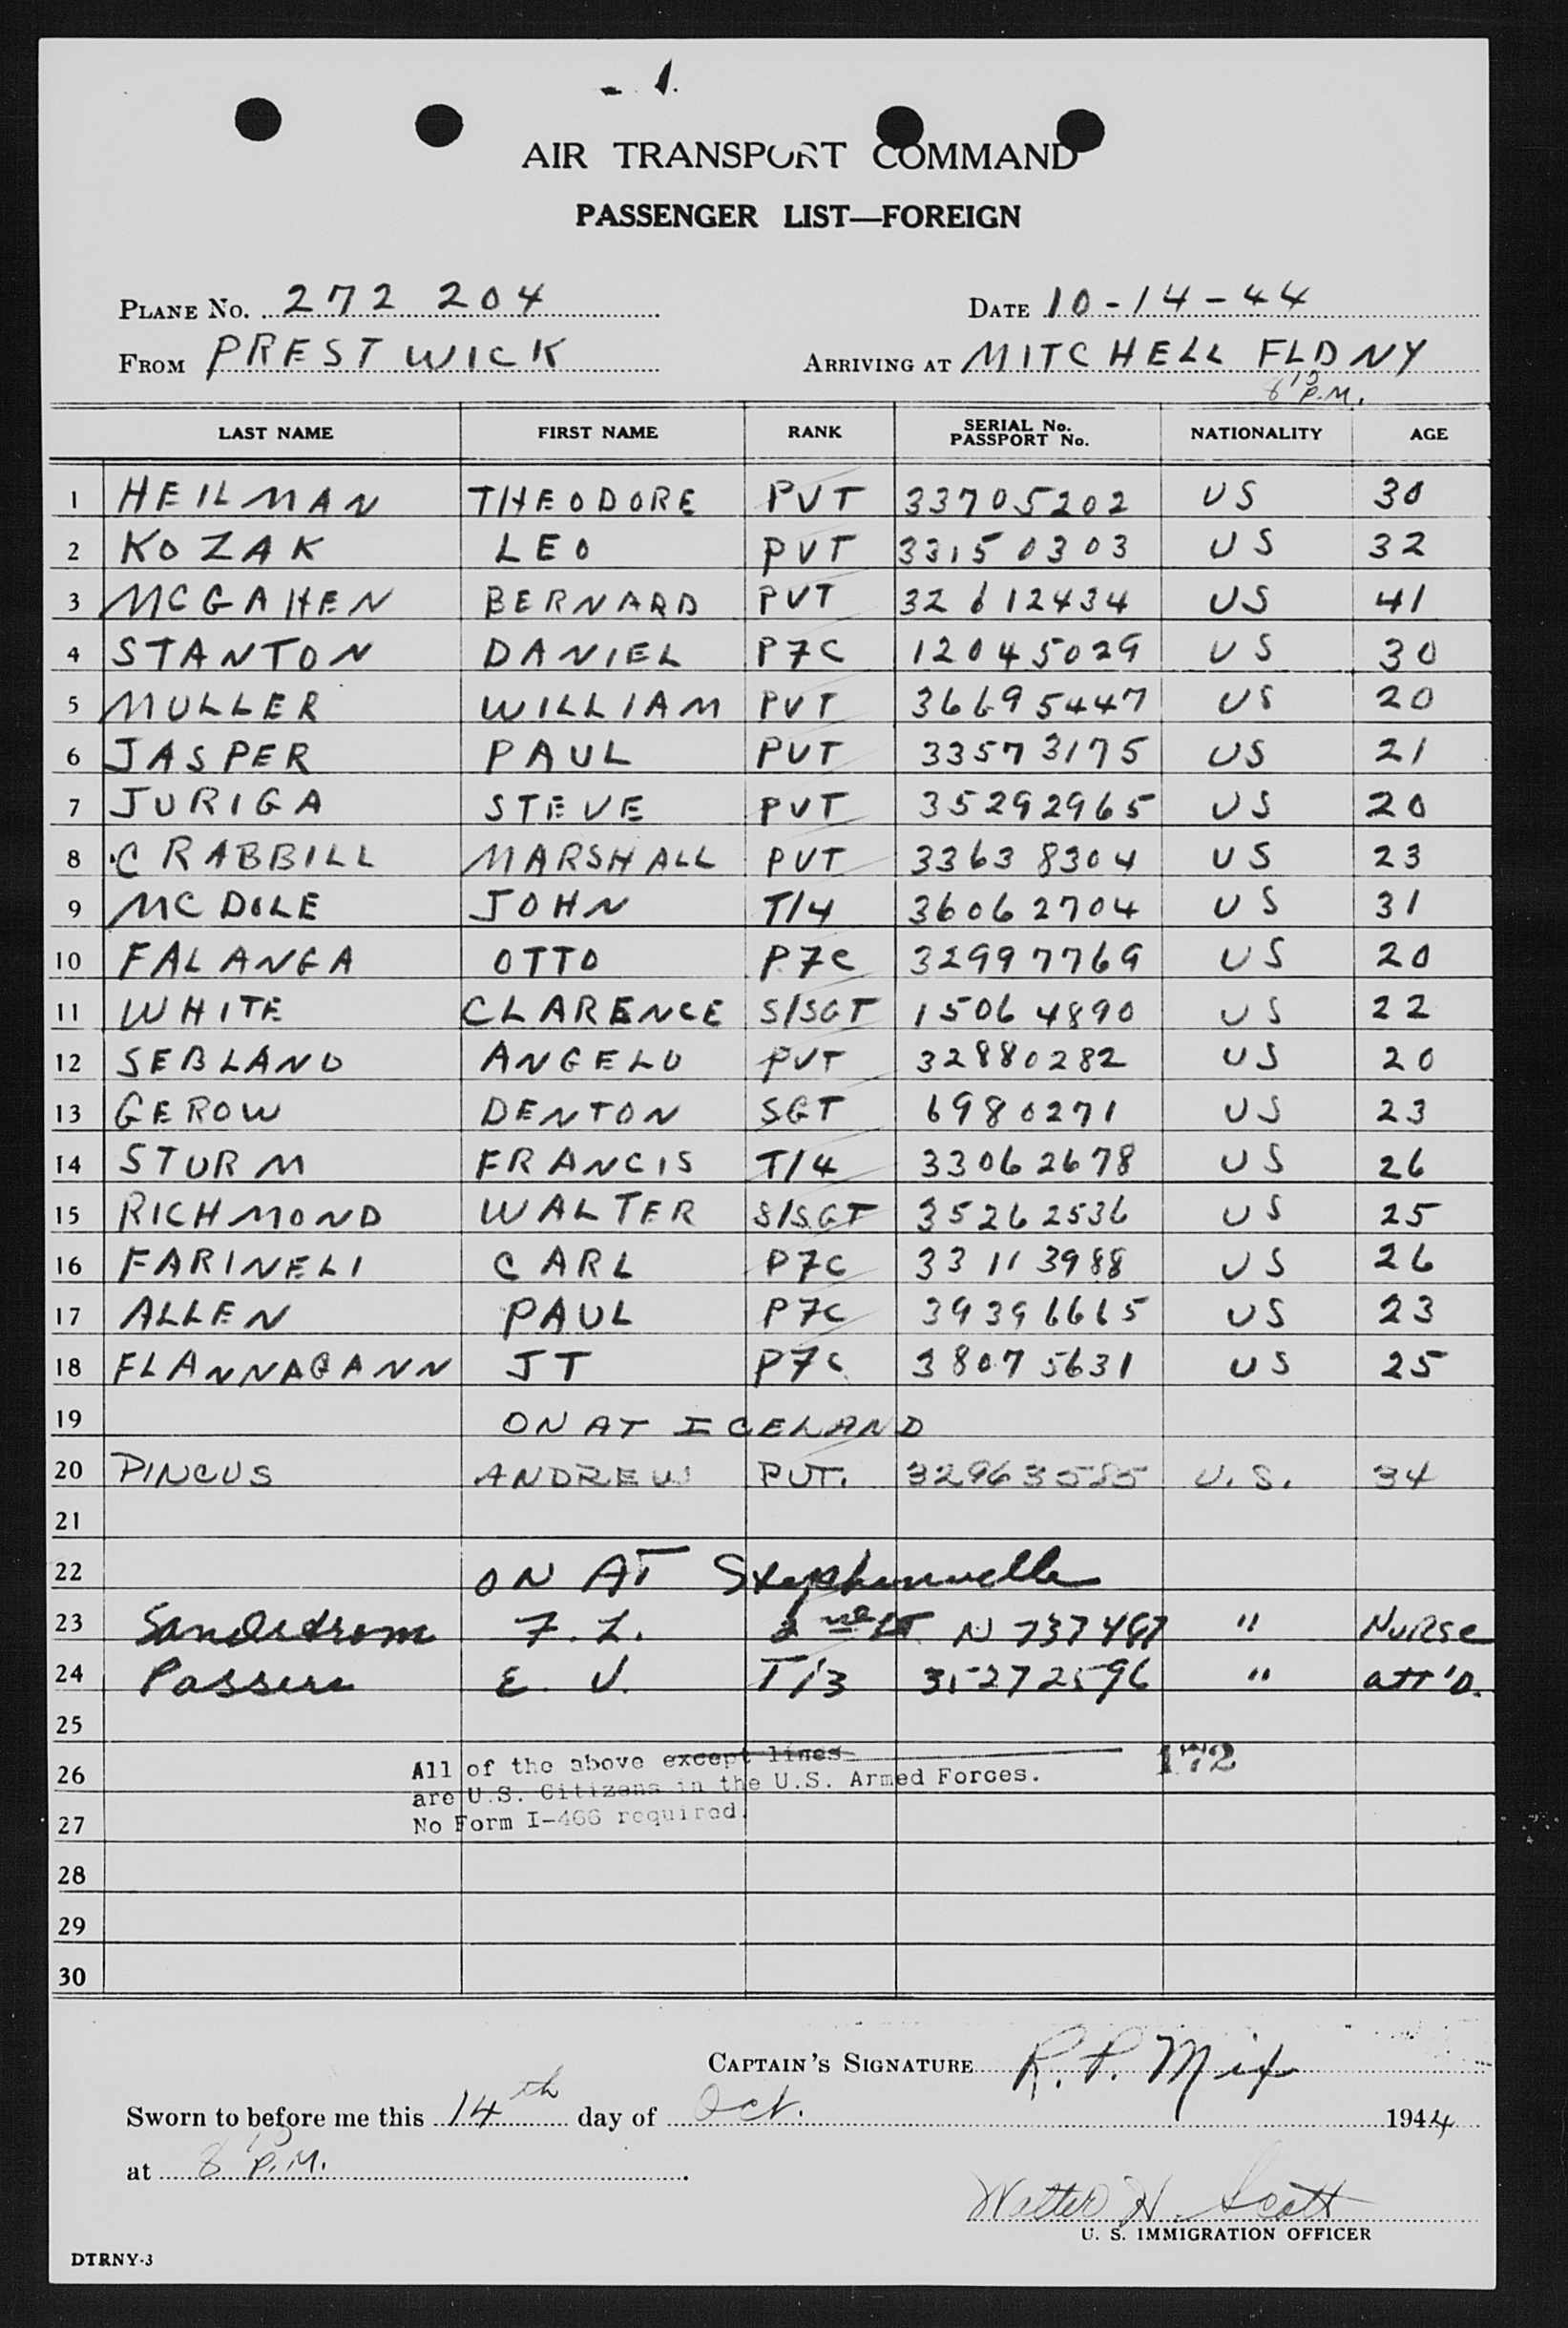 - 1.
AIR TRANSPORT COMMAND
PASSENGER LIST—FOREIGN
PLANE No. 272 204 DATE 10-14-44
FROM PRESTWICK ARRIVING AT MITCHELL FLD NY
8 15 P.M.
LAST NAME FIRST NAME RANK SERIAL No. PASSPORT No. NATIONALITY AGE
1 HEILMAN THEODORE PVT 33705202 US 30
2 KOZAK LEO PVT 33150303 US 32
3 MCGAHEN BERNARD PVT 32612434 US 41
4 STANTON DANIEL P7C 12045029 US 30
5 MULLER WILLIAM PVT 36695447 US 20
6 JASPER PAUL PVT 33573175 US 21
7 JURIGA STEVE PVT 35292965 US 20
8 CRABBILL MARSHALL PVT 33638304 US 23
9 MCDOLE JOHN T/4 36062704 US 31
10 FALANGA OTTO P7C 32997769 US 20
11 WHITE CLARENCE S/SGT 15064890 US 22
12 SEBLANO ANGELO PVT 32880282 US 20
13 GEROW DENTON SGT 6980271 US 23
14 STURM FRANCIS T/4 33062678 US 26
15 RICHMOND WALTER S/SGT 35262536 US 25
16 FARINELI CARL P7C 33113988 US 26
17 ALLEN PAUL P7C 39396665 US 23
18 FLANNAGANN JT P7C 38075631 US 25
19 ON AT ICELAND
20 PINCUS ANDREW PVT. 32963585 U.S. 34
21
22 ON AT Stephenville
23 Sandstrom F. L. 2nd LT N 737487 " NURSE
24 E. V. T/3 35272596 " att'D.
25
26 All of the above except lines 172
are U.S. Citizens in the U.S. Armed Forces.
27 No Form I-466 required.
28
29
30
CAPTAIN'S SIGNATURE R. P. Mix
Sworn to before me this 14th day of Oct. 1944
at 8 15 P.M.
Walter H. Scott
U. S. IMMIGRATION OFFICER
DTRNY-3